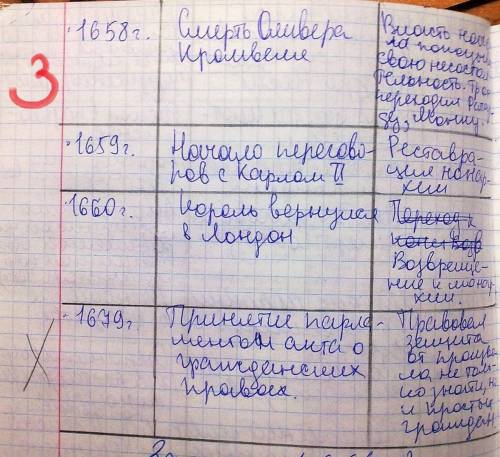 3
· 1658г.
Смерть Оливера
Кромвеля
Власть нача-
ла
свою несостоя
тельность.
переходит
Монку.
· 1659г.
Начало перегово-
ров с Карлом II
Реставра-
ция монар-
хии
1660г.
Король вернулся
в Лондон
Переход к
Возвраще-
ние к монар-
хии.
· 1679г.
Принятие парла-
ментом акта о
гражданских
правах.
Правовая
защита
от произво
ла, не толь-
ко знати, но
и простых
граждан